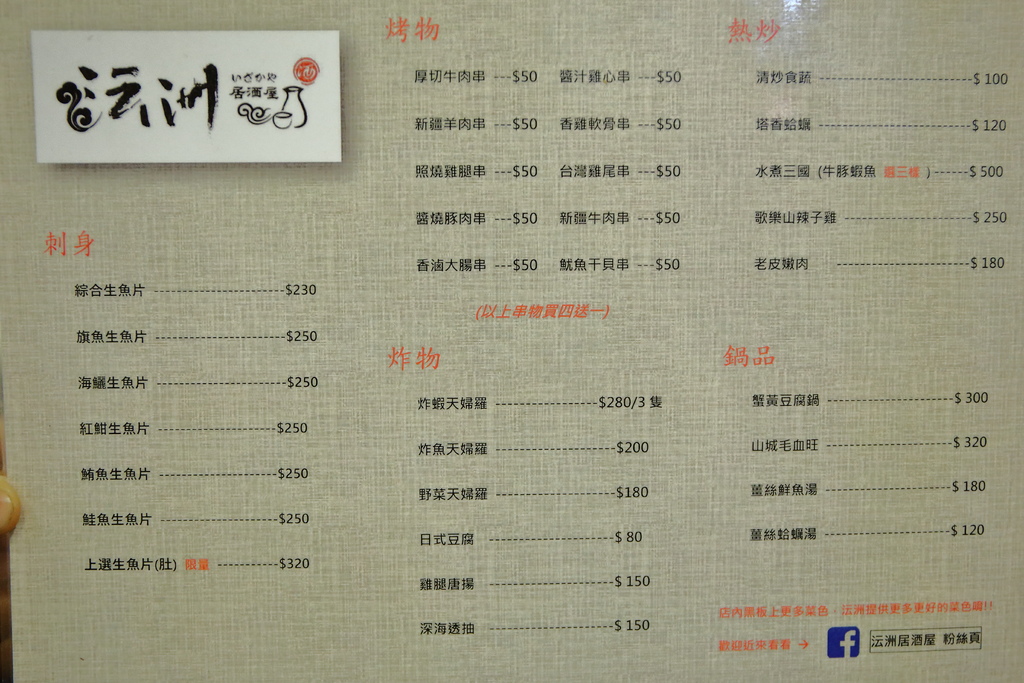 沄洲
いざかや
居酒屋
酒
刺身
綜合生魚片 ----------------------$230
旗魚生魚片 ----------------------$250
海鱺生魚片 ----------------------$250
紅魽生魚片 ---------------------$250
鮪魚生魚片 --------------------$250
鮭魚生魚片 --------------------$250
上選生魚片(肚) 限量 ----------$320
烤物
厚切牛肉串 ---$50 醬汁雞心串 ---$50
新疆羊肉串 ---$50 香雞軟骨串 ---$50
照燒雞腿串 ---$50 台灣雞尾串 ---$50
醬燒豚肉串 ---$50 新疆牛肉串 ---$50
香滷大腸串 ---$50 魷魚干貝串 ---$50
(以上串物買四送一)
炸物
炸蝦天婦羅 ------------------$280/3 隻
炸魚天婦羅 ---------------------$200
野菜天婦羅 ---------------------$180
日式豆腐 ------------------------$ 80
雞腿唐揚 ------------------------$ 150
深海透抽 ------------------------$ 150
熱炒
清炒食蔬 --------------------------$ 100
塔香蛤蠣 --------------------------$ 120
水煮三國 (牛豚蝦魚 選三樣 )------$ 500
歌樂山辣子雞 ----------------------$ 250
老皮嫩肉 -----------------------$ 180
鍋品
蟹黃豆腐鍋 ----------------------$ 300
山城毛血旺 ----------------------$ 320
薑絲鮮魚湯 ----------------------$ 180
薑絲蛤蠣湯 ----------------------$ 120
店內黑板上更多菜色，沄洲提供更多更好的菜色喔!!
歡迎近來看看 → f 沄洲居酒屋 粉絲頁